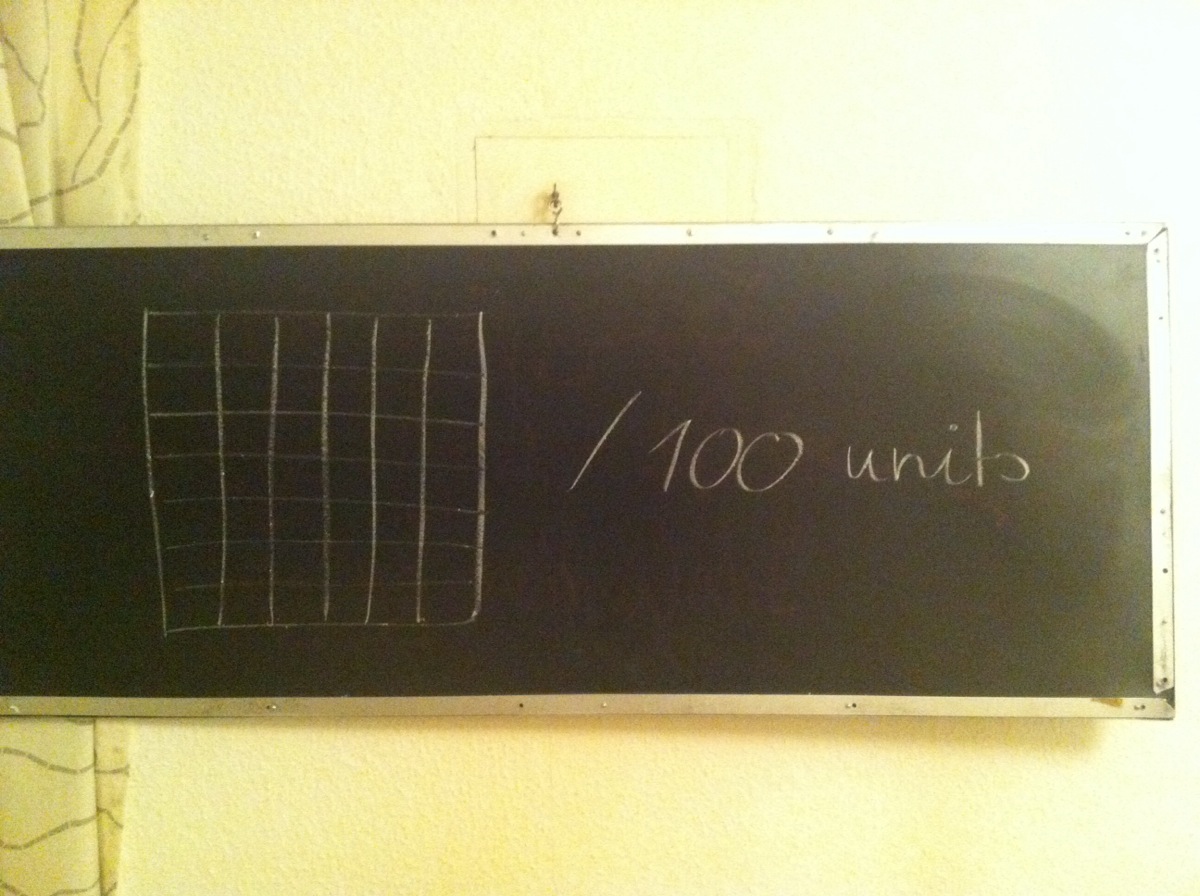 /100 units